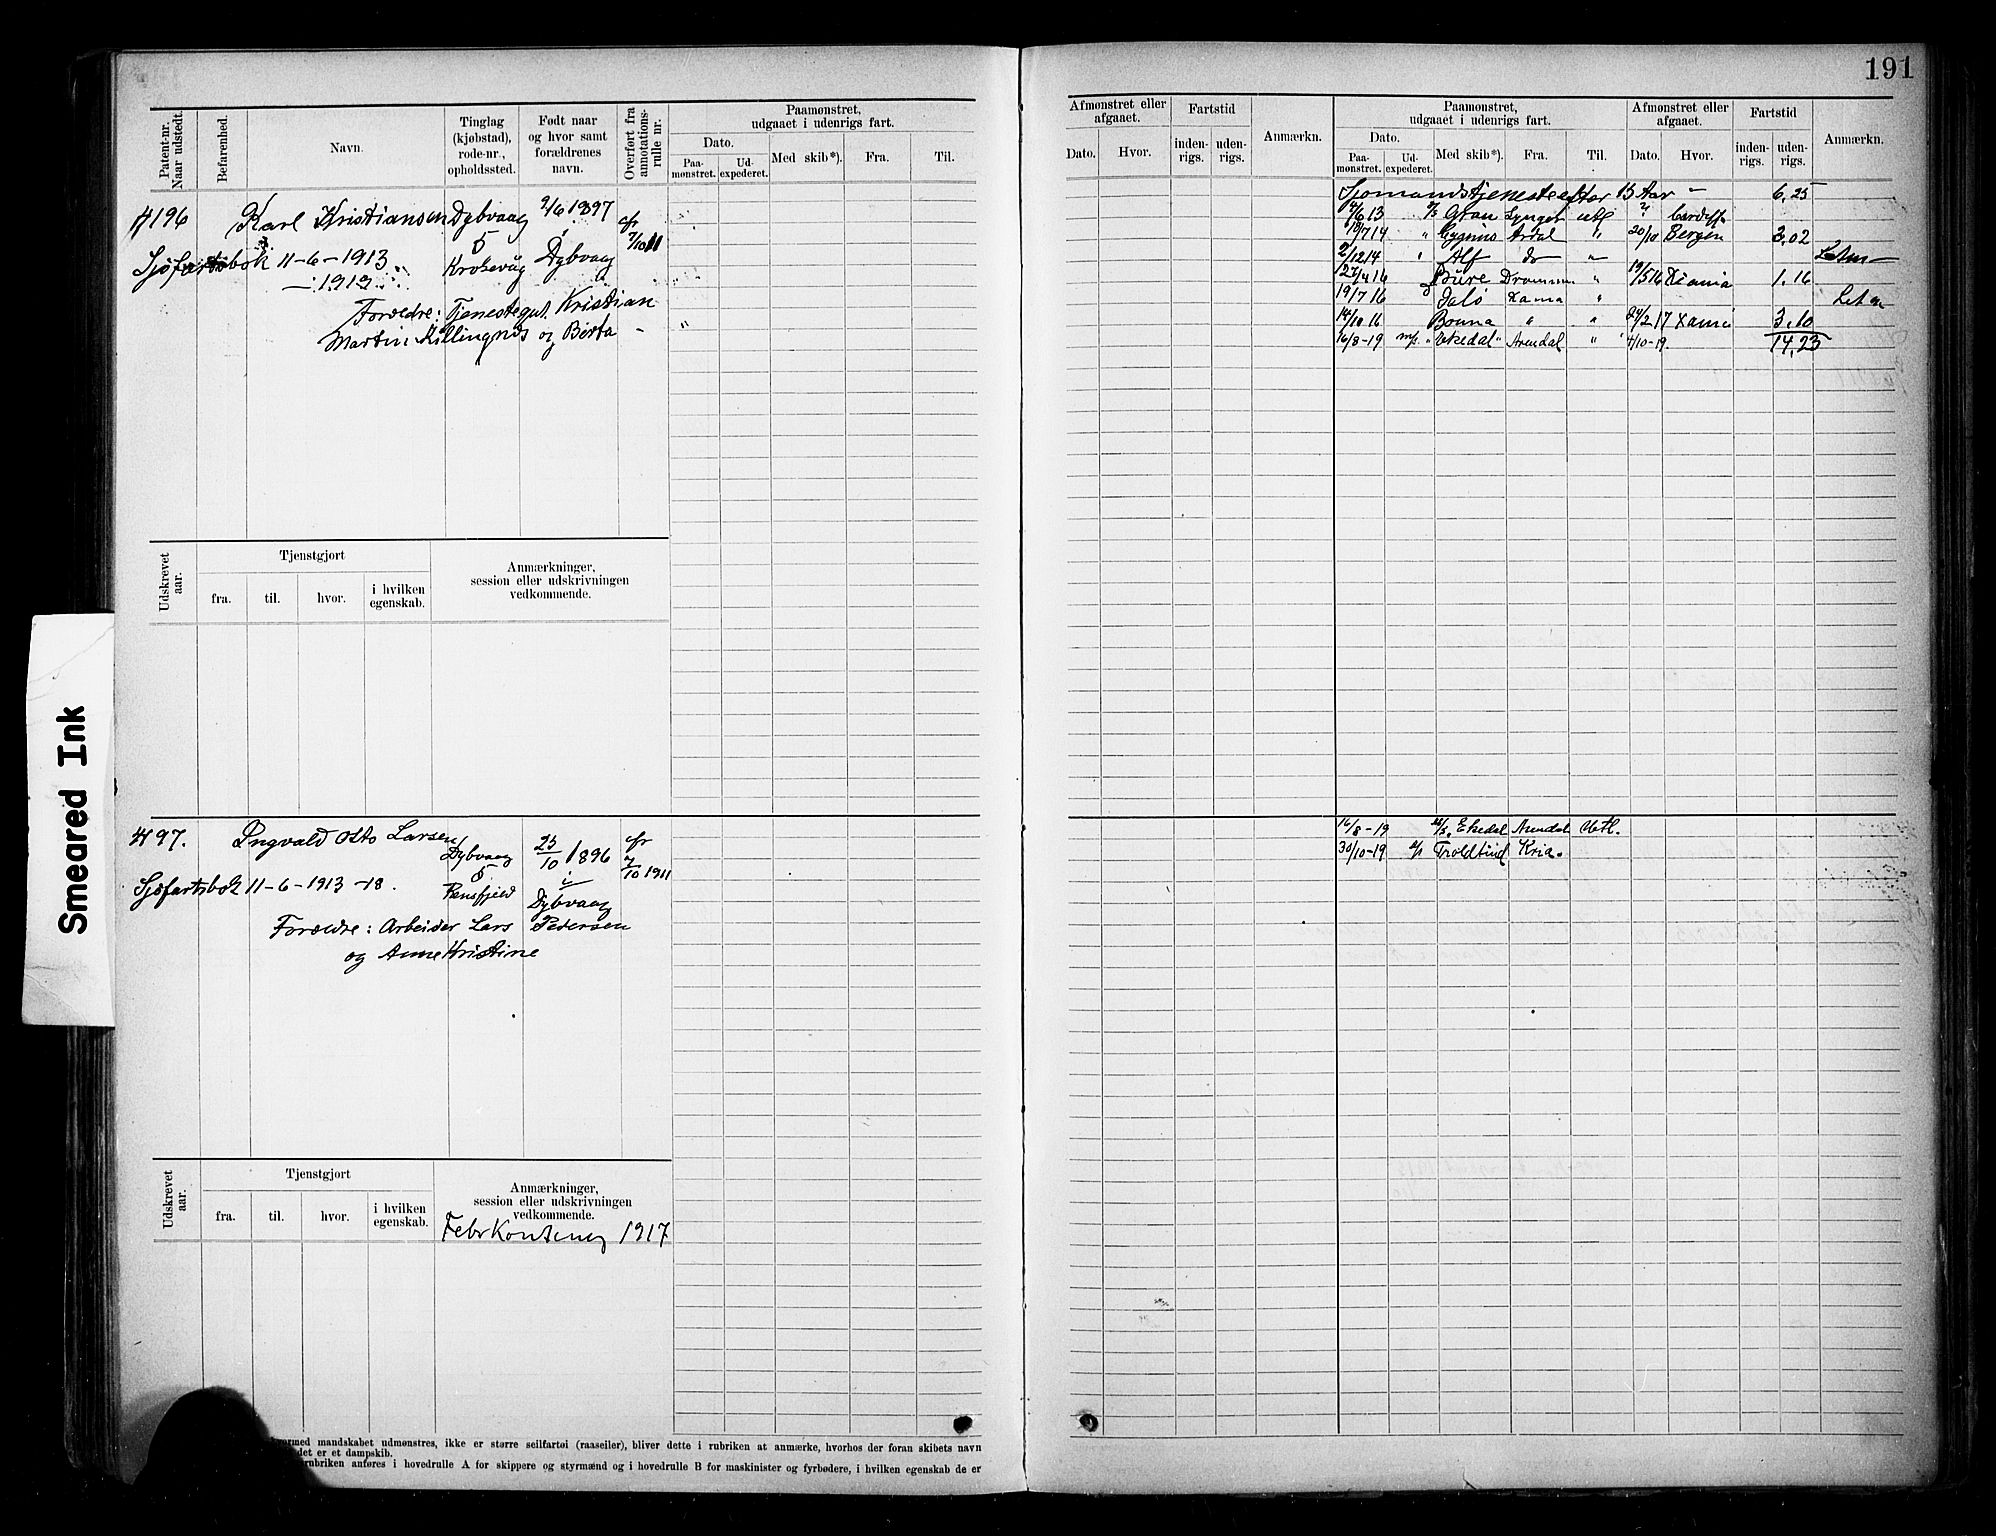 191
Patent-nr. Naar udstedt.
Befarenhed.
Navn.
Tinglag (kjøbstad), rode-nr., opholdssted.
Født naar og hvor samt forældrenes navn.
Overført fra annotations-rulle nr.
Paamønstret, udgaaet i udenrigs fart.
Dato.
Paa-mønstret.
Ud-expederet.
Med skib*).
Fra.
Til.
4196 Karl Kristiansen Dybvaag 9/6 1897
5
Sjøfartsbok 11-6-1913 Dybvaag 7/10 11
-"- 1919
Forældre: Tjenestegut Kristian
Martin Killingnæs og Berta
Udskrevet aar.
Tjenstgjort
fra. til. hvor. i hvilken egenskab.
Anmærkninger, session eller udskrivningen vedkommende.
4197. Ingvald Otto Larsen
Dybvaag 25/10 1896
5 i 7/10 1911
Sjøfartsbok 11-6-1913-18. Dybvaag
Forældre: Arbeider Lars Pedersen
og Anne Kristine
Udskrevet aar.
Tjenstgjort
fra. til. hvor. i hvilken egenskab.
Anmærkninger, session eller udskrivningen vedkommende.
1917
vormed mandskabet udmønstres, ikke er større seilfartøi (raaseiler), bliver dette i rubriken at anmærke, hvorhos der foran skibets navn
det er et dampskib.
rubriken anføres i hovedrulle A for skippere og styrmænd og i hovedrulle B for maskinister og fyrbødere, i hvilken egenskab de er
Afmønstret eller afgaaet.
Dato. Hvor.
Fartstid
inden-rigs. uden-rigs.
Anmærkn.
Paamønstret, udgaaet i udenrigs fart.
Dato.
Paa-mønstret. Ud-expederet.
Med skib*). Fra. Til.
Afmønstret eller afgaaet.
Dato. Hvor.
Fartstid
inden-rigs. uden-rigs.
Anmærkn.
Sjømandstjeneste efter 15 Aar - 6,25
14/6 13 Gran Lyngør utl Cardiff
/7 14 " Cygnus Ardal " 20/10 Bergen 3,02
2/12 14 " Alf do
27/4 16 Bure Drammen " 19/5 16 Xania 1.16
19/7 16 Xania "
14/10 16 Bonna " " 24/2 17 Xania 3,10
16/8-19 m/s. "Ekedal" Arendal " 4/10-19. 14,23
16/8-19 m/s. Ekedal Arendal Utl.
30/10-19 Troldtind Kria.
Smeared Ink